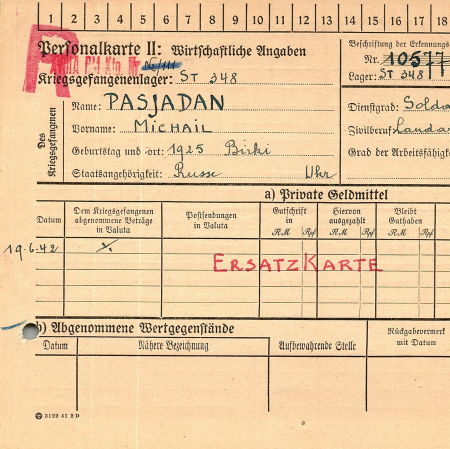 1 2 3 4 5 6 7 8 9 10 11 12 13 14 15 16 17 18
Personalkarte II: Wirtschaftliche Angaben
Beschriftung der Erkennungs
Nr. 10577
Kriegsgefangenenlager: ST 348
Lager: ST 348
R
Des Kriegsgefangenen
Name: PASJADAN
Vorname: MICHAIL
Geburtstag und -ort: 1925 Birki
Staatsangehörigkeit: Russe Ukr
Dienstgrad: Solda
Zivilberuf: Landar
Grad der Arbeitsfähigk
a) Private Geldmittel
Datum
Dem Kriegsgefangenen abgenommene Beträge in Valuta
Postsendungen in Valuta
Gutschrift in
RM Rpf
Hiervon ausgezahlt
RM Rpf
Bleibt Guthaben
RM Rpf
19.6.42
ERSATZKARTE
b) Abgenommene Wertgegenstände
Rückgabevermerk mit Datum
Datum
Nähere Bezeichnung
Aufbewahrende Stelle
3122 41 2 D